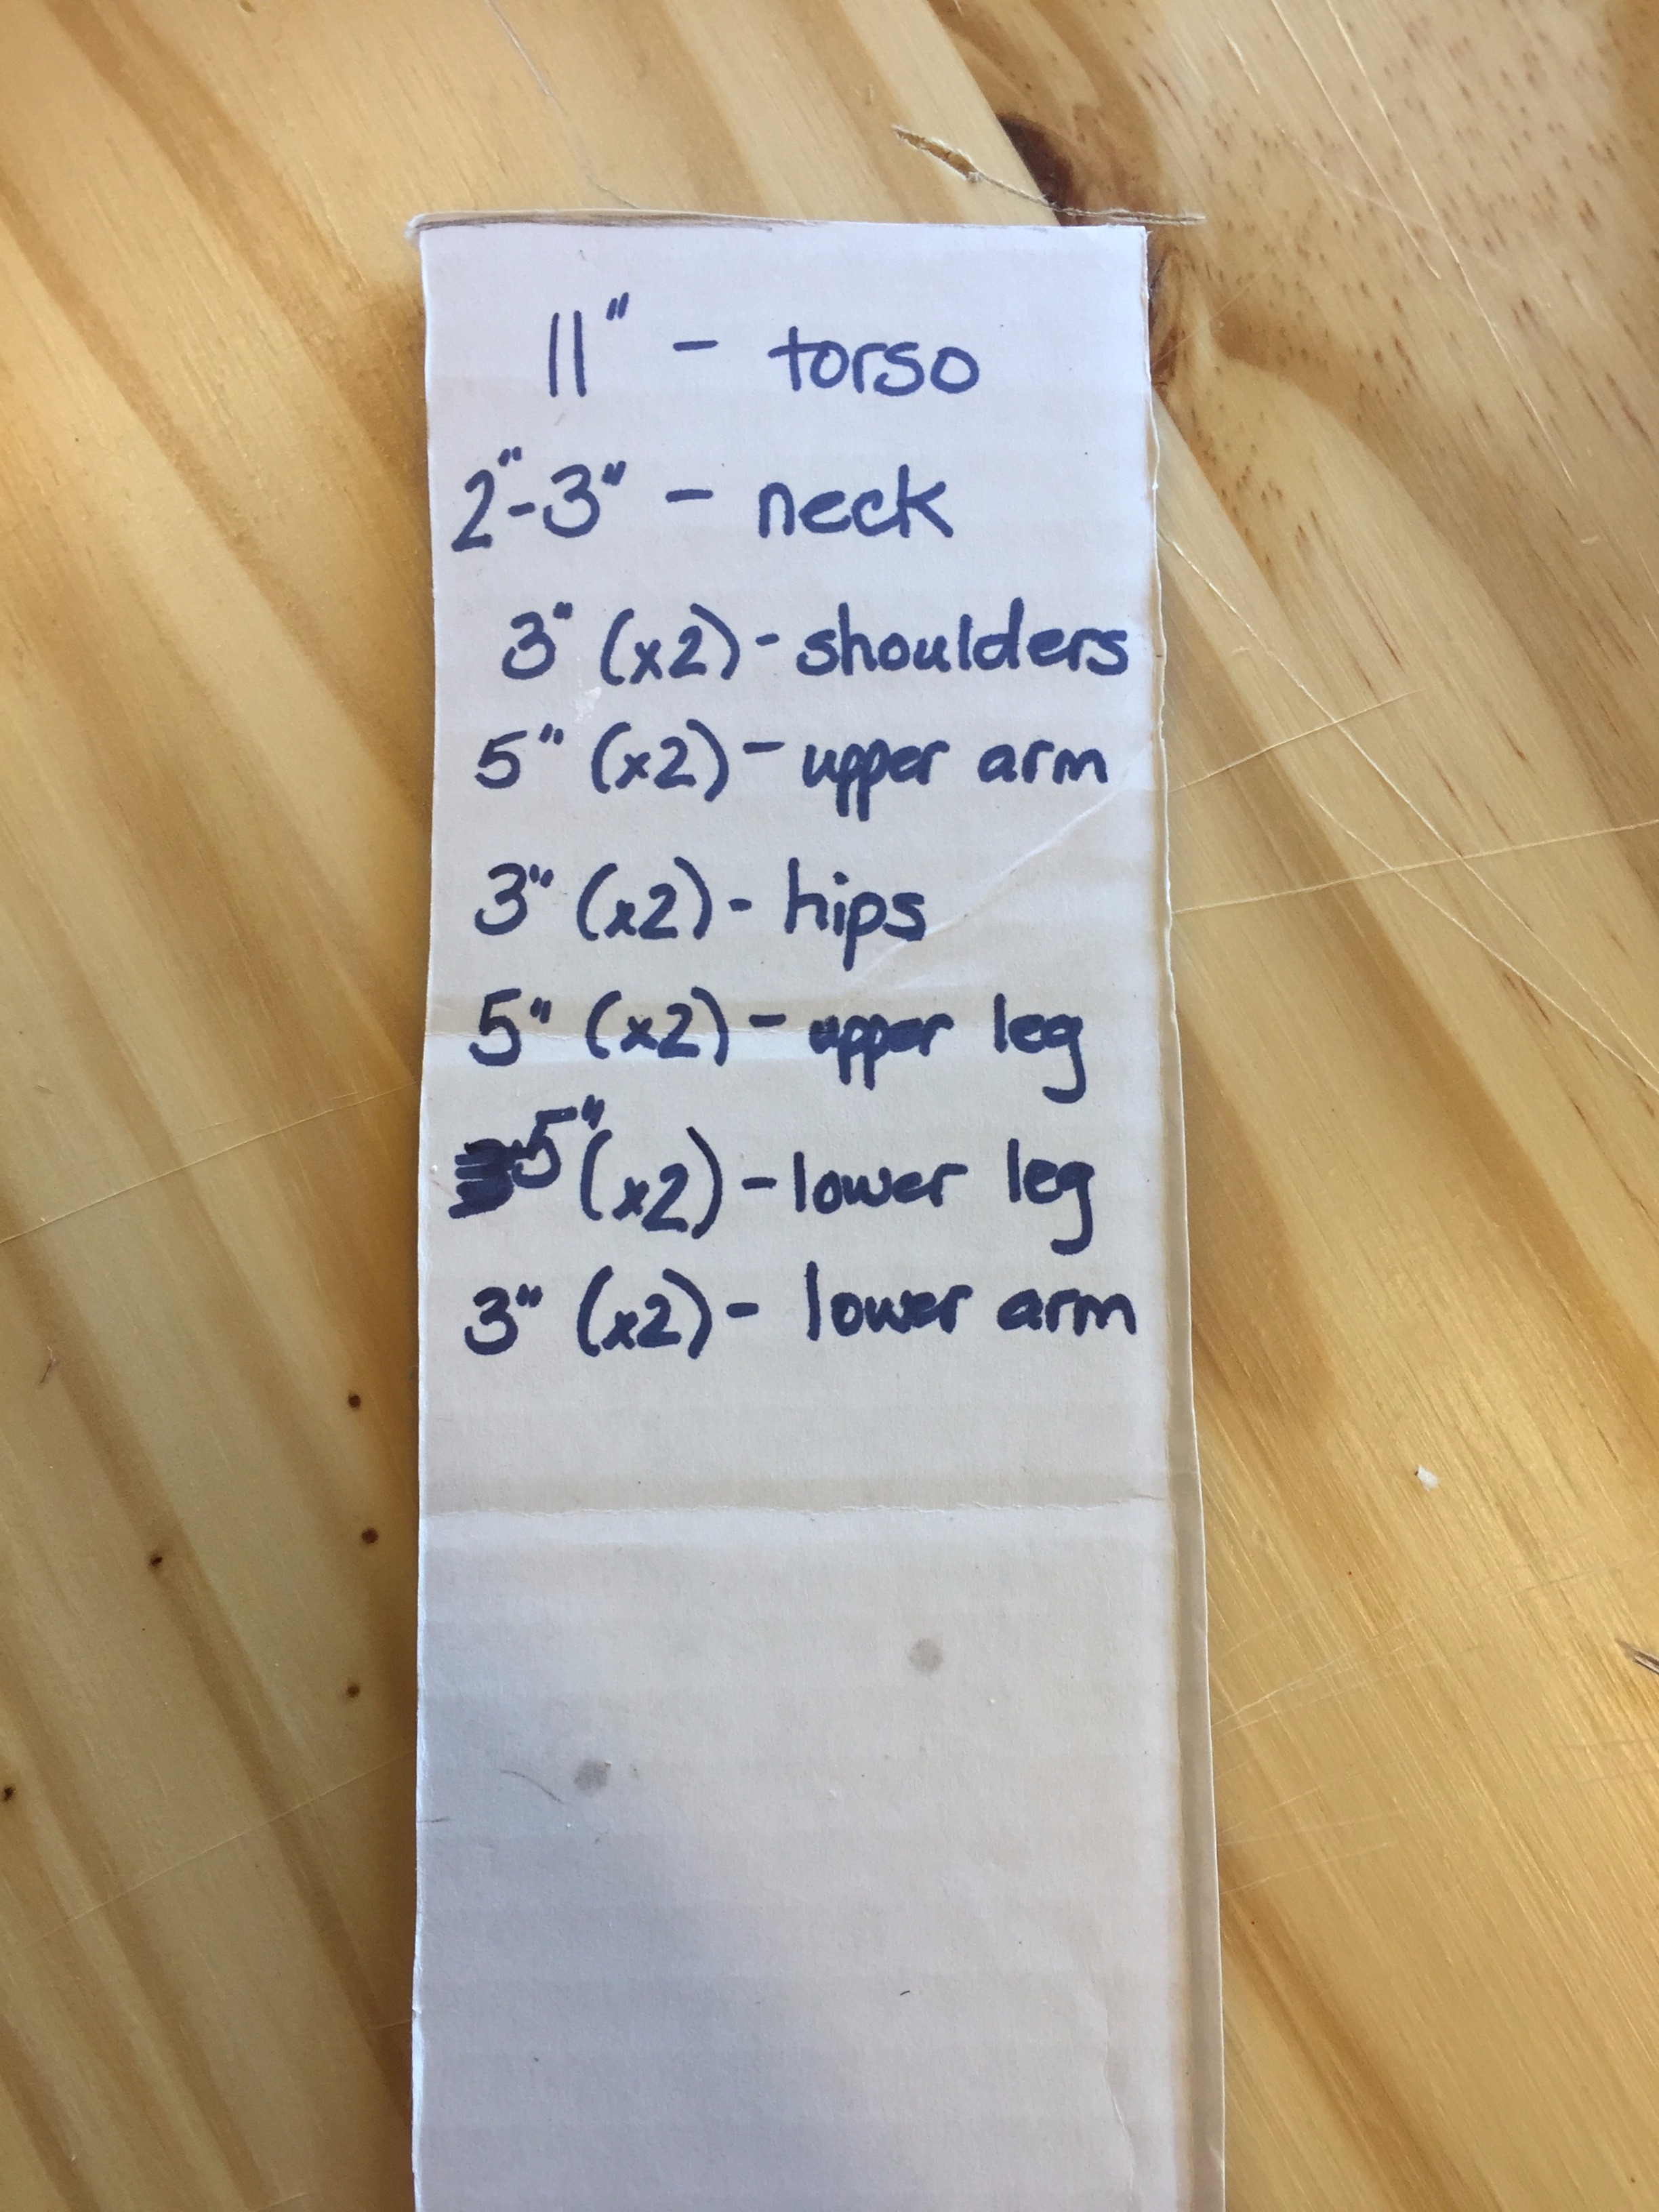 11" - torso
2"-3" - neck
3" (x2) - shoulders
5" (x2) - upper arm
3" (x2) - hips
5" (x2) - upper leg
5" (x2) - lower leg
3" (x2) - lower arm